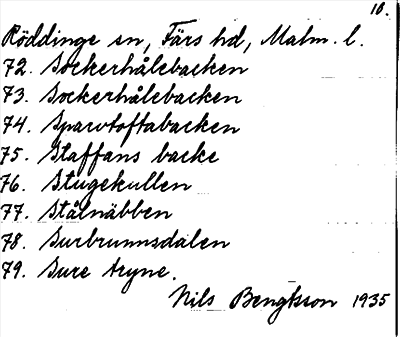 10.
Röddinge sn, Färs hd, Malm. l.
72. Sockerhålebacken
73. Sockerhålebacken
74. Sparvtoftabacken
75. Staffans backe
76. Stugekullen
77. Stålnäbben
78. Surbrunnsdalen
79. Sure tryne.
Nils Bengtsson 1935